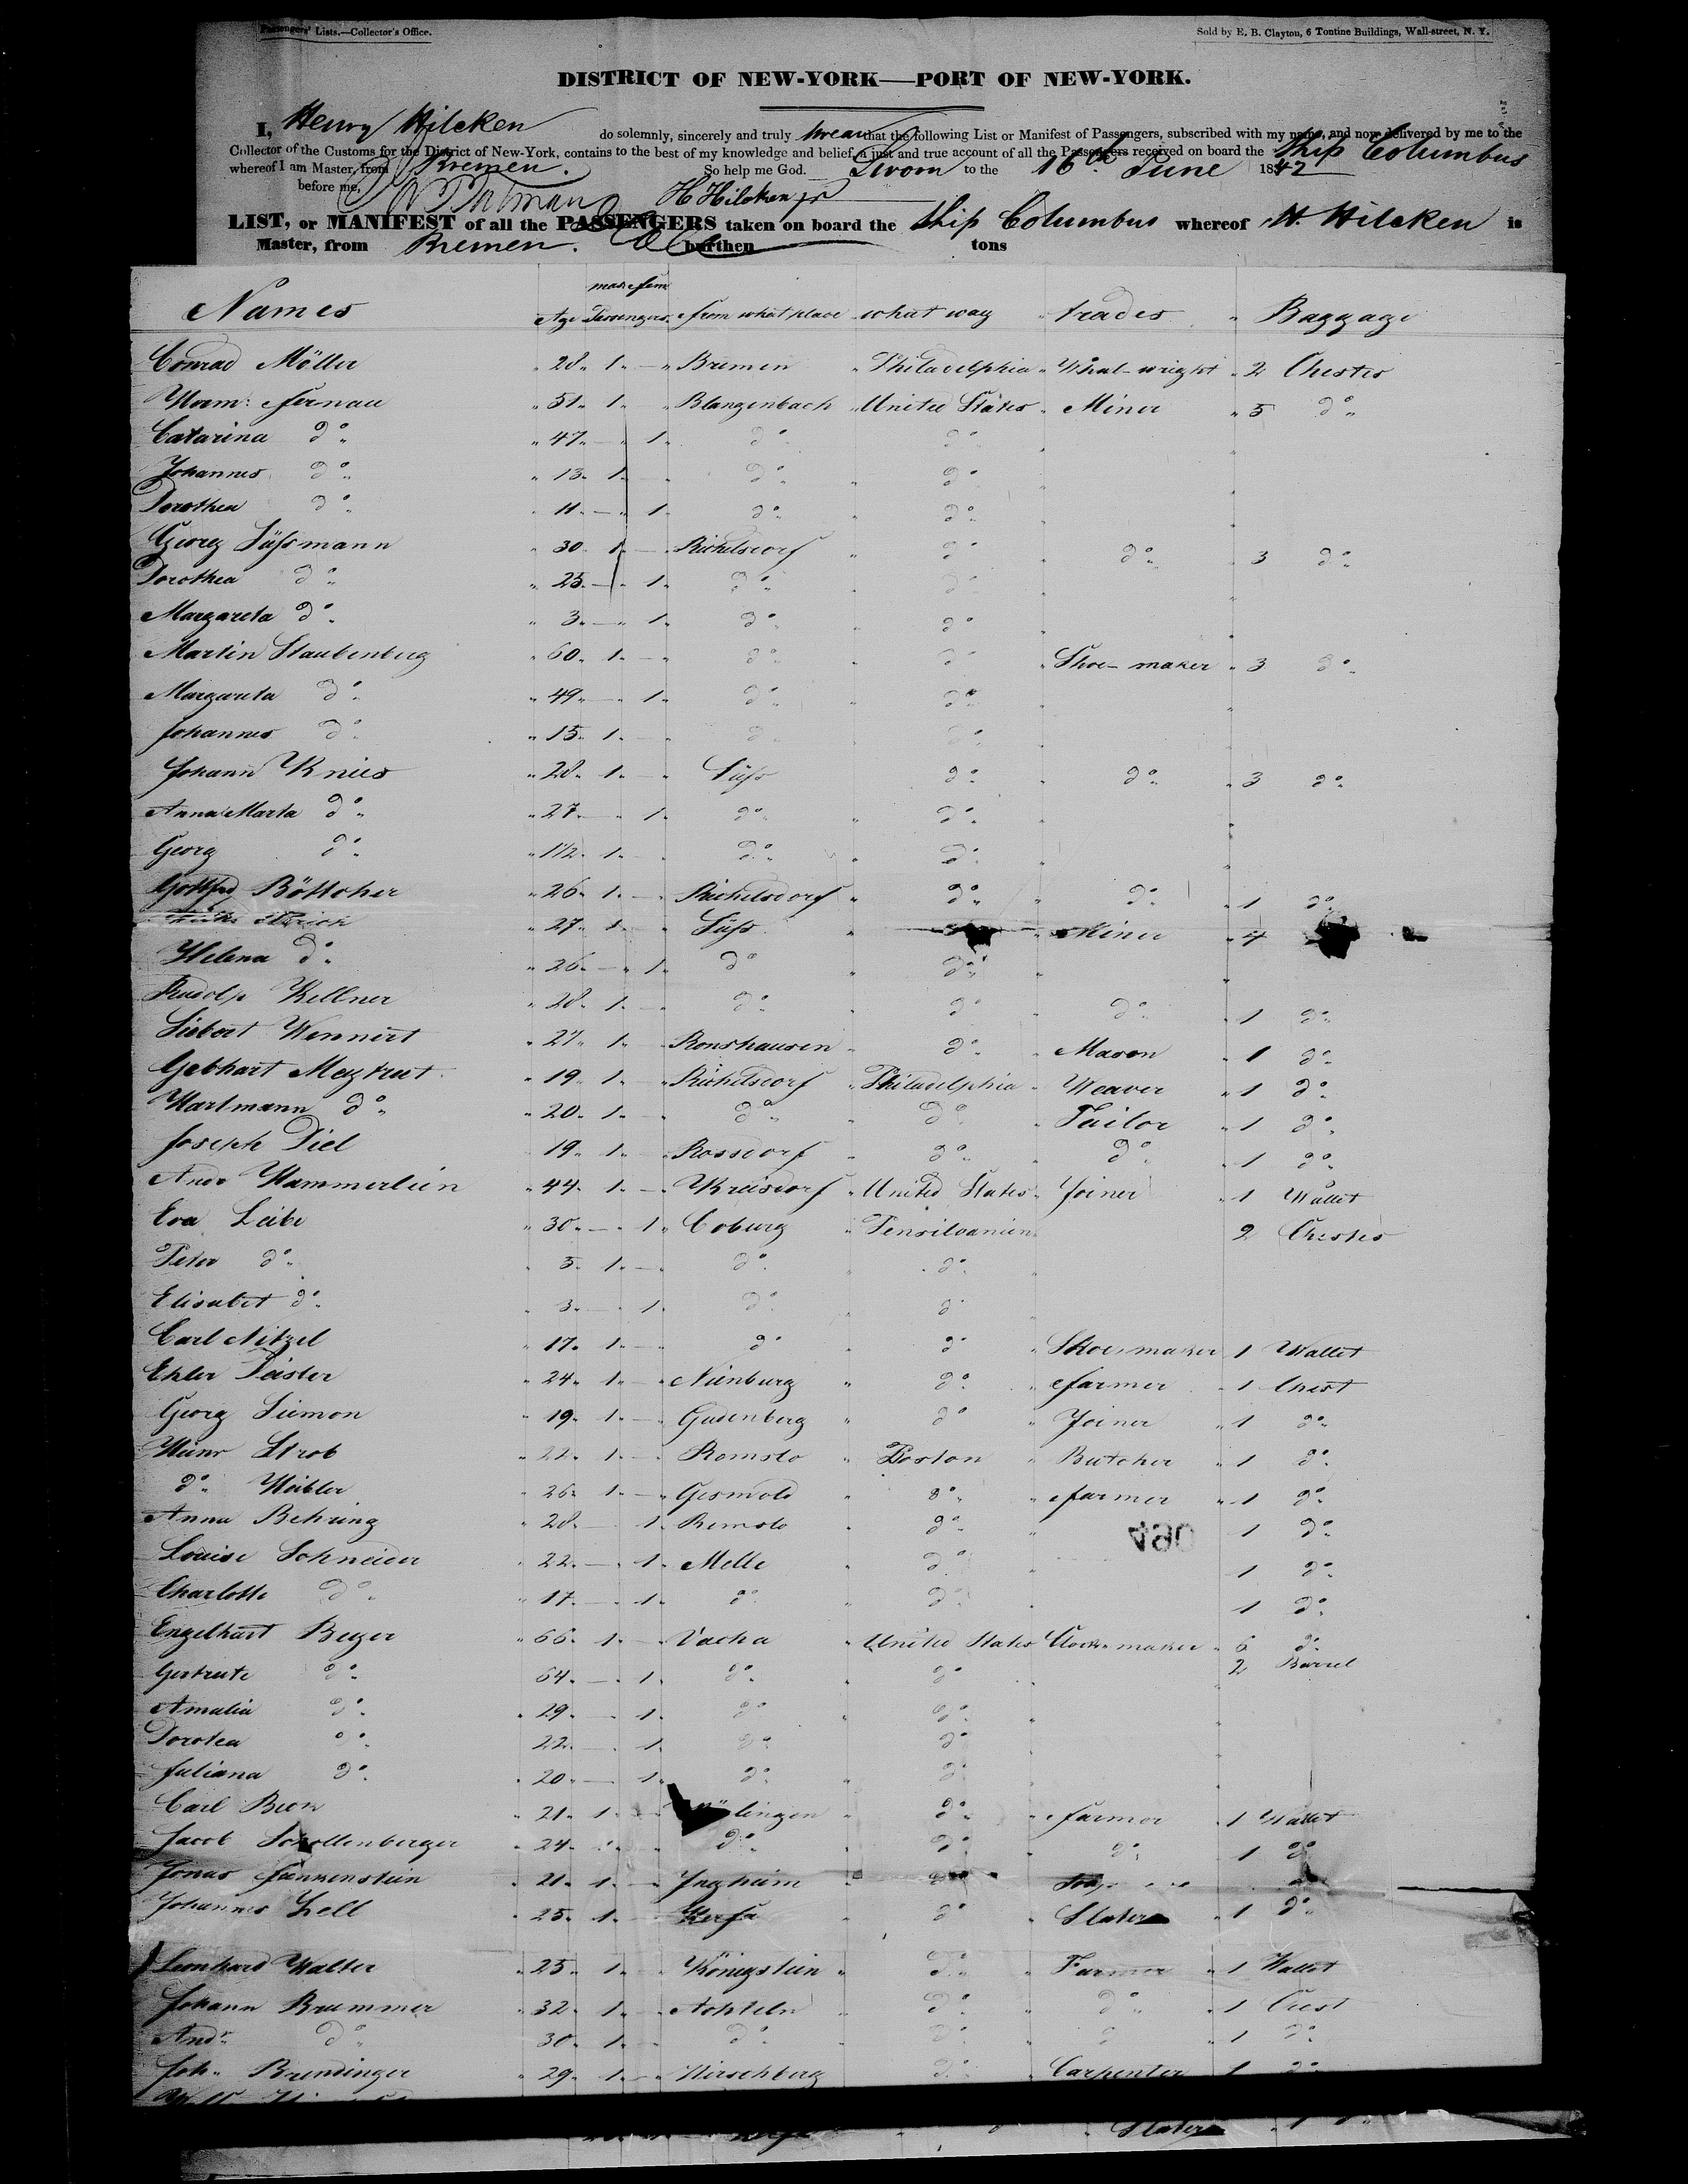 Passengers' Lists.—Collector's Office. Sold by E. B. Clayton, 6 Tontine Buildings, Wall-street, N. Y.
DISTRICT OF NEW-YORK—PORT OF NEW-YORK.
I, Henry Hilcken do solemnly, sincerely and truly swear that the following List or Manifest of Passengers, subscribed with my name, and now delivered by me to the
Collector of the Customs for the District of New-York, contains to the best of my knowledge and belief, a just and true account of all the Passengers received on board the Ship Columbus
whereof I am Master, from Bremen. So help me God. Sworn to the 16th June 1842
before me, H Hilcken jr
LIST, or MANIFEST of all the PASSENGERS taken on board the Ship Columbus whereof H. Hilcken is
Master, from Bremen. burthen tons
Names Age Passengers male fem from what place what way trades Baggage
Conrad Möller 28 1 Bremen Philadelphia Wheel-wright 2 Chestes
Herm: Fernau 51 1 Blangenbach United States Miner 5 do
Catarina do 47 1 do do
Johannes do 13 1 do do
Dorothea do 11 1 do do
Georg Süssmann 30 1 Richelsdorf do do 3 do
Dorothea do 25 1 do do
Margareta do 3 1 do do
Martin Staubenberg 60 1 do do Shoe-maker 3 do
Margareta do 49 1 do do
Johannes do 15 1 do do
Johann Knies 28 1 Süss do do 3 do
Anna Marta do 27 1 do do
Georg do 1 1/2 1 do do
Gottfrd Böttcher 26 1 Richelsdorf do do 1 do
27 1 Süss Miner 4
Helena do 26 1 do do
Rudolp Kellner 28 1 do do do 1 do
Siebert Wennert 27 1 Ronshausen do Mason 1 do
Gebhart Meykut 19 1 Richelsdorf Philadelphia Weaver 1 do
Hartmann do 20 1 do do Tailor 1 do
Joseph Diel 19 1 Rossdorf do do 1 do
Andr Hammerlein 44 1 Kreisdorf United States Joiner 1 Wallet
Eva Leibe 30 1 Coburg Pensilvanien 2 Chestes
Peter do 5 1 do do
Elisabet do 3 1 do do
Carl Nitzel 17 1 do do Shoe maker 1 Wallet
Ehler Deister 24 1 Nienburg do farmer 1 Chest
Georg Siemon 19 1 Gudenberg do Joiner 1 do
Heinr Strob 22 1 Romslo Boston Butcher 1 do
do Weibler 26 1 Gesmold do farmer 1 do
Anna Behring 28 1 Remslo do 1 do
Louise Schneider 22 1 Melle do 1 do
Charlotte do 17 1 do do 1 do
Engelhart Beyer 66 1 Vacha United States Clock maker 6 do
2 Barrel
Gertrute do 64 1 do do
Amalia do 29 1 do do
Dorotea do 22 1 do do
Juliana do 20 1 do do
Carl Bron 21 1 do farmer 1 Wallet
Jacob Schollenberger 24 do do do 1 do
Jonas Funkenstein 21 1 Ingheim do
Johannes Zell 25 1 do Slater 1 do
Leonhard Walter 25 1 Königstein do Farmer 1 Wallet
Johann Brummer 32 1 Achteln do do 1 Chest
Andr do 30 1 do do do 1 do
Joh. Brendinger 29 1 Hirschberg do Carpenter 1 do
Slater 1